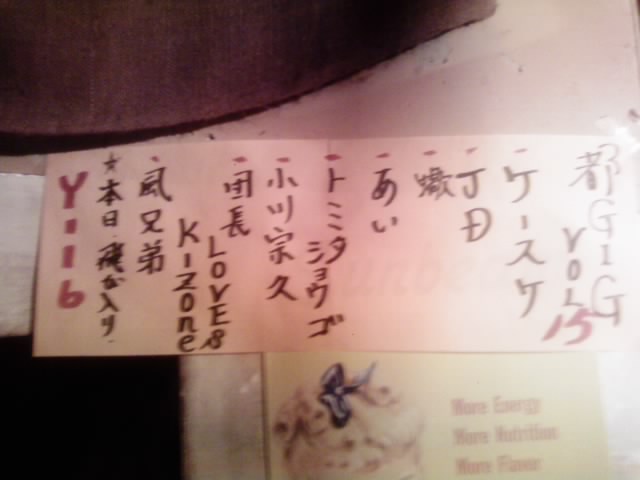 都GIG
VOL
15
ケースケ
JD
蠍
あい
トミタ
ショウゴ
小川宗久
団長
LOVES
Kizone
風兄弟
☆本日飛び入り
Y-116
More Energy
More Nutrition
More Flavor